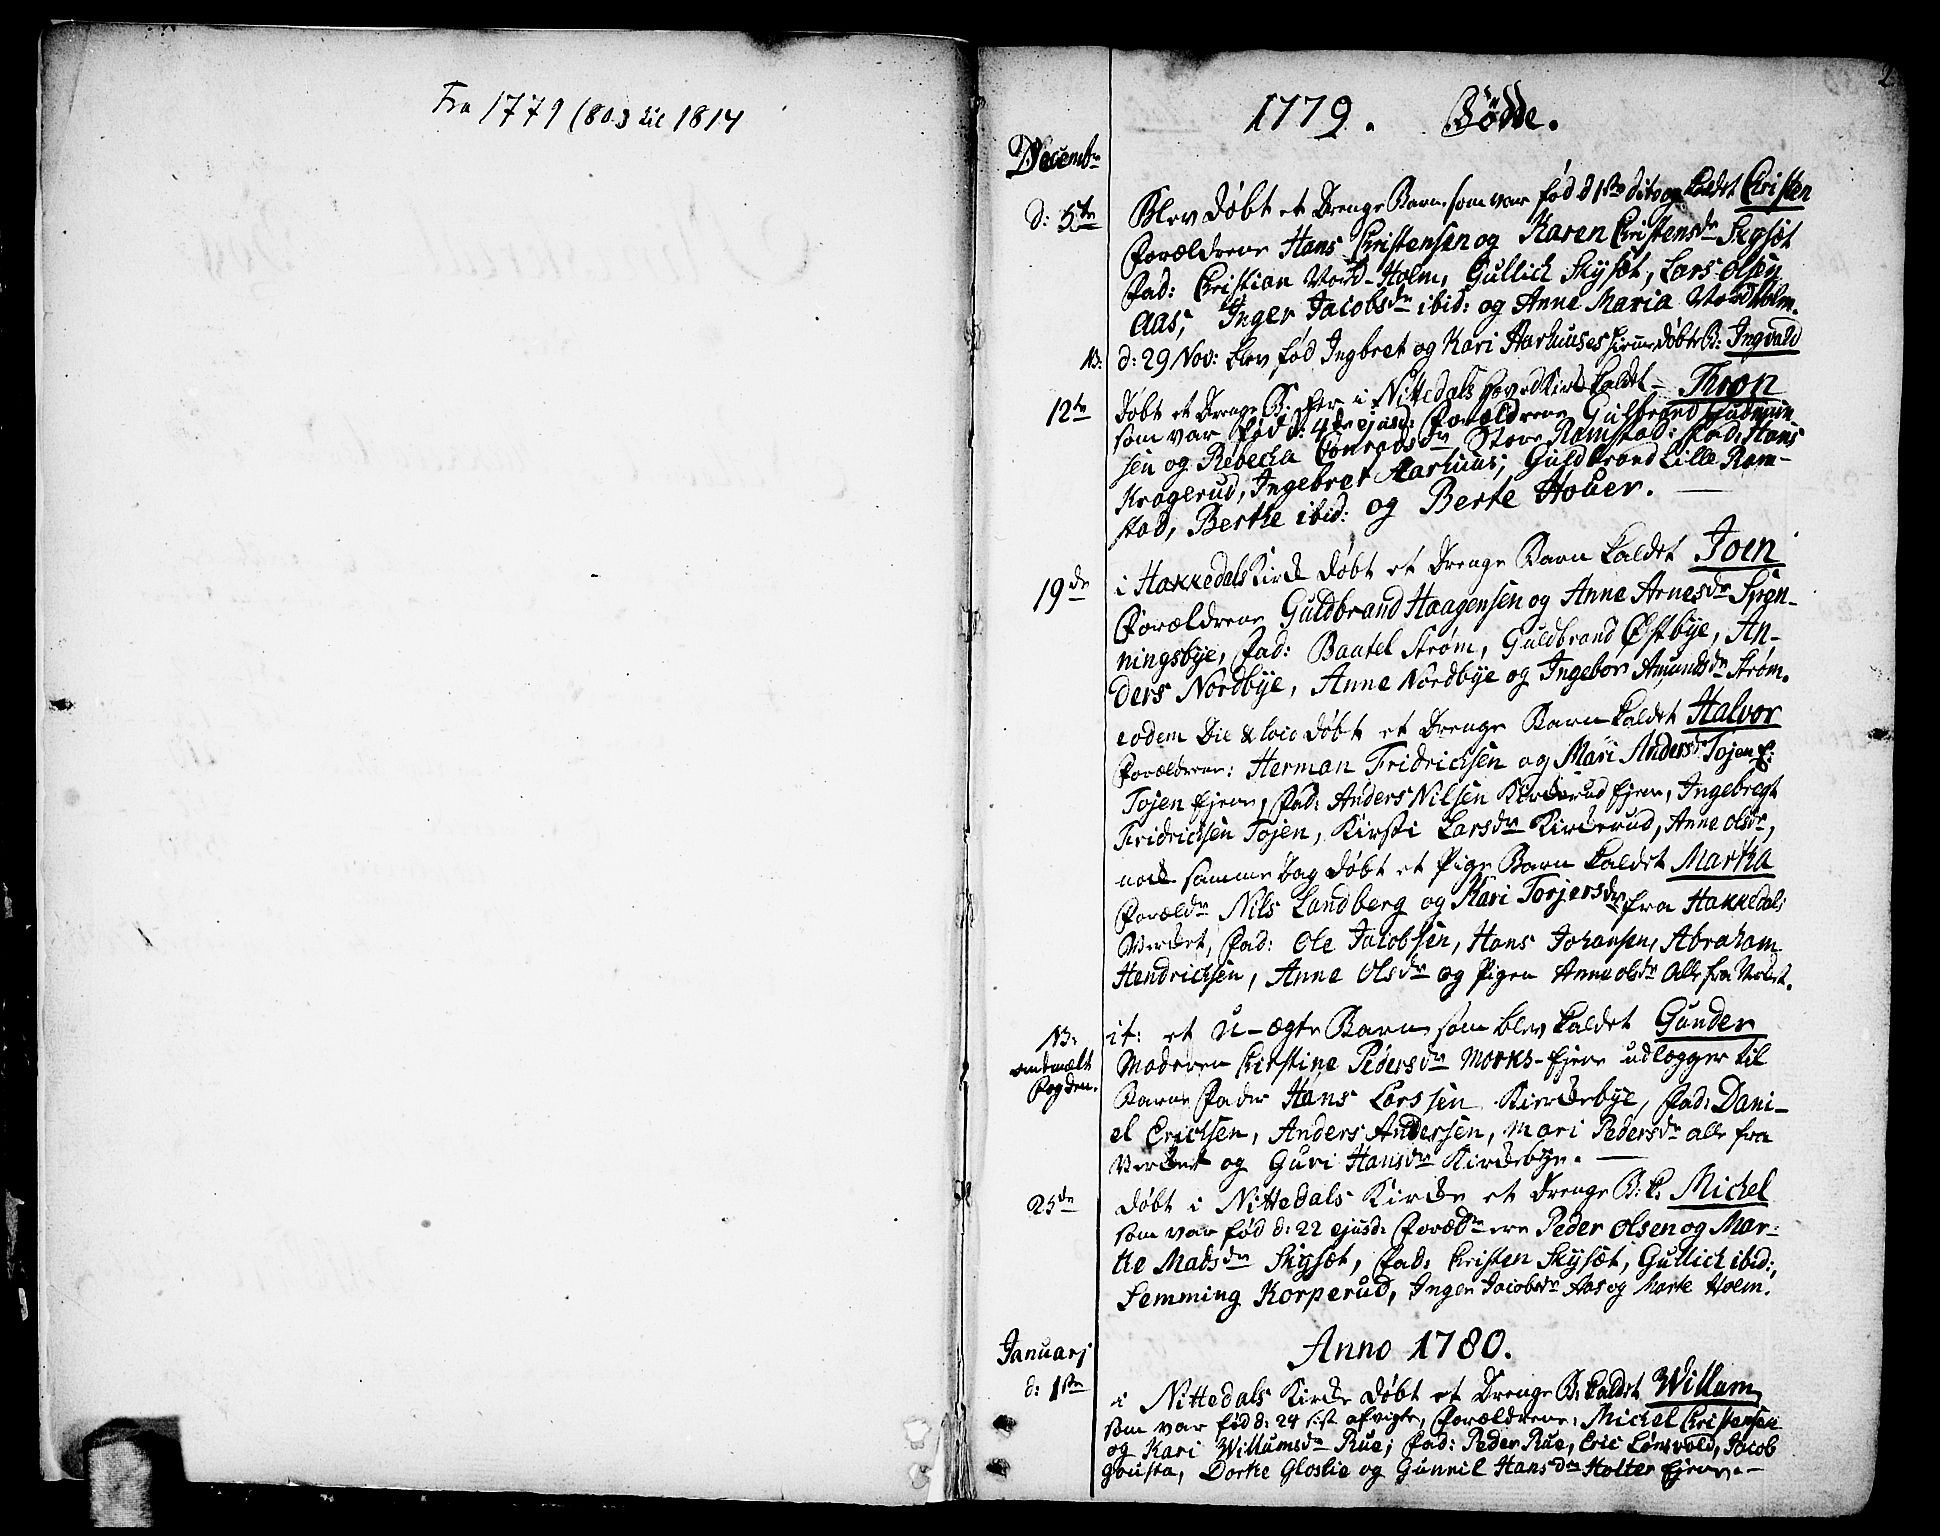 Fra 1779 (803 til 1814
2
1779. Døbte.
Decembr
d: 5te Blev døbt et Drenge Barn som var fød d 1ste dito og kaldet Christen
Forældrene Hans Christensen og Karen Christensdr Skysæt
Fad: Christian Nord-Holm, Gullich Skysæt, Lars Olsen
Aas, Inger Jacobsdr ibid: og Anne Maria Nordholm.
NB: d: 29 Nov: blev fød Ingbret og Kari Aarhuuses hiemedøbte B: Ingvald
12te Døbt et Drenge B: her i Nittedals Hoved Kirke kaldet Thron
som var fød d: 4de ejusd: Forældrene Gulbrand Gudmun
sen og Rebecka Conradsdr Store Ramstad: Fad: Hans
Kragerud, Ingebret Aarhuus, Guldbrand Lille Ram-
stad, Berthe ibid: og Berte Houer.
19de i Hakkedals Kirke døbt et Drenge Barn kaldet Joen
Forældrene Guldbrand Haagensen og Anne Arnesdr Spøn-
ningsbye, Fad: Baatel Strøm, Guldbrand Østbye, An-
ders Nordbye, Anne Nordbye og Ingebor Amundsdr Strøm.
eodem Die & loco døbt et Drenge Barn kaldet Halvor
Forældrene: Herman Fridrichsen og Mari Andersdr Tøjen E:
Tøjen Ejere, Fad: Anders Nilsen Kirkerud Ejere, Ingebregt
Fridrichsen Tøjen, Kirsti Larsdr Kirkerud, Anne Olsdr,
nock samme Dag døbt et Pige Barn kaldet Martha
Foreldr Nils Landberg og Kari Torjersdr fra Hakkedals
Verket, Fad: Ole Jacobsen, Hans Johansen, Abraham
Hendrichsen, Anne Olsdr og Pigen Anne Olsdr alle fra Verket.
NB: it: et U-ægte Barn som blev kaldet Gunder
andmælt Moderen Kirstine Pedersdr Morks-Ejere udlegger til
Fogden. Barne Fader Hans Larssen Kierkebye, Fad: Dani-
el Erichsen, Anders Anderssen, Mari Pedersdr alle fra
Verket og Guri Hansdr Kirkebye.
25de Døbt i Nittedals Kirke et Drenge B: k: Michel
som var fød d: 22 ejusd: Forældrene Peder Olsen og Mar-
the Madsdr Skysæt, Fad: Christen Skysæt, Gullich ibid:,
Femming Korperud, Inger Jacobsdr Aas og Marte Holm.
Anno 1780.
Januarj
d: 1ste i Nittedals Kirke døbt et Drenge B: kaldet Willum
som var fød d: 24 sist afvigte, Forældrene, Michel Christensen
og Kari Willumsdr Rue; Fad: Peder Rue, Eric Lørsvold, Jacob
Dorthe Gloslie og Gunnil Hansdr Holter Ejere.